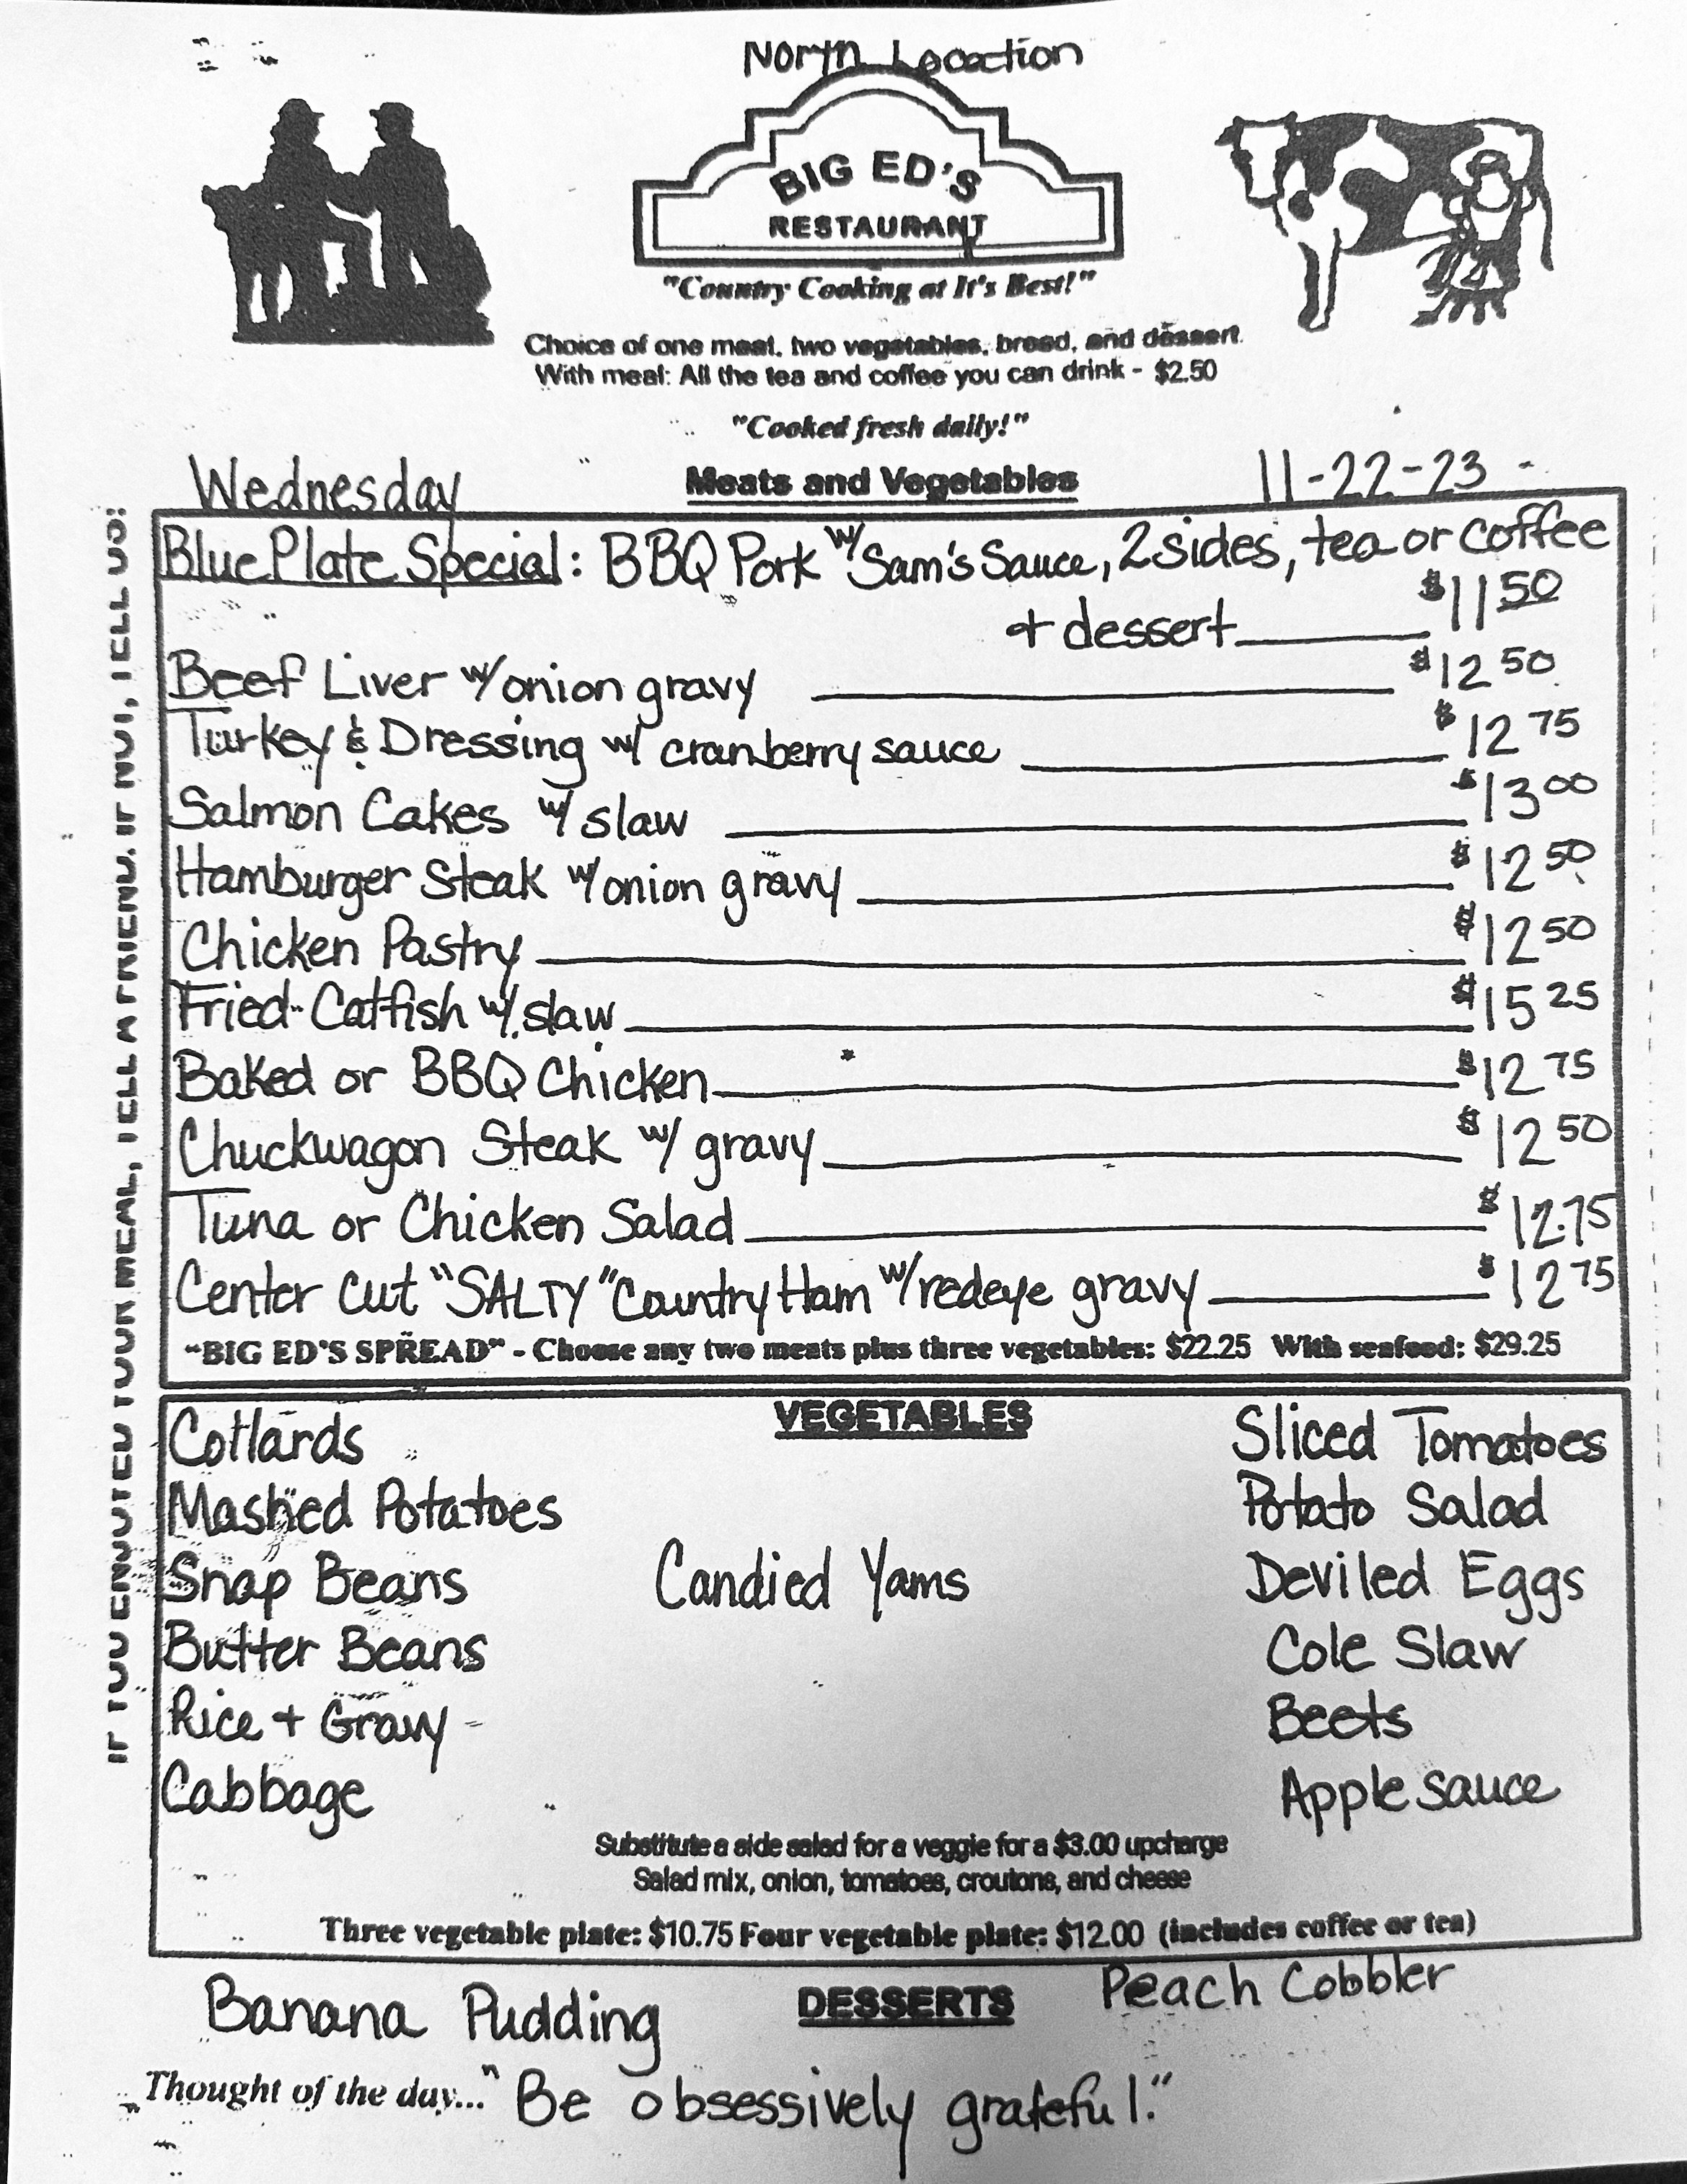 North Location
BIG ED'S
RESTAURANT
"Country Cooking at It's Best!"
Choice of one meat, two vegetables, bread, and dessert.
With meal: All the tea and coffee you can drink - $2.50
"Cooked fresh daily!"
Wednesday
Meats and Vegetables
11-22-23
Blue Plate Special: BBQ Pork w/ Sam's Sauce, 2 sides, tea or coffee
+ dessert $11 50
Beef Liver w/ onion gravy $12 50
Turkey & Dressing w/ cranberry sauce $12 75
Salmon Cakes w/ slaw $13 00
Hamburger Steak w/ onion gravy $12 50
Chicken Pastry $12 50
Fried Catfish w/ slaw $15 25
Baked or BBQ Chicken $12 75
Chuckwagon Steak w/ gravy $12 50
Tuna or Chicken Salad $12.75
Center Cut "SALTY" Country Ham w/ redeye gravy $12 75
"BIG ED'S SPREAD" - Choose any two meats plus three vegetables: $22.25 With seafood: $29.25
IF YOU ENJOYED YOUR MEAL, TELL A FRIEND. IF NOT, TELL US!
VEGETABLES
Collards
Mashed Potatoes
Snap Beans
Butter Beans
Rice + Gravy
Cabbage
Candied Yams
Sliced Tomatoes
Potato Salad
Deviled Eggs
Cole Slaw
Beets
Apple sauce
Substitute a side salad for a veggie for a $3.00 upcharge
Salad mix, onion, tomatoes, croutons, and cheese
Three vegetable plate: $10.75 Four vegetable plate: $12.00 (includes coffee or tea)
DESSERTS
Banana Pudding
Peach Cobbler
Thought of the day... "Be obsessively grateful."